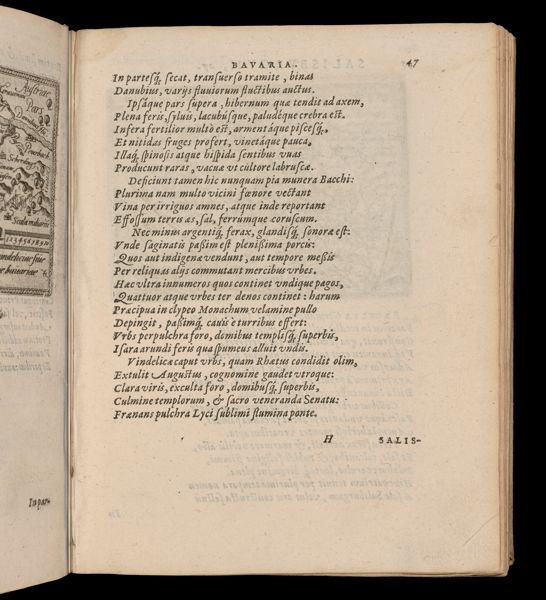 Austriae
Pars
Scala miliarium
In par-
BAVARIA. 47
In partesq́₃ secat, transuerso tramite, binas
Danubius, varijs fluuiorum fluctibus auctus.
Ipsáque pars supera, hibernum quæ tendit ad axem,
Plena feris, syluis, lacubúsque, paludéque crebra est.
Infera fertilior multò est, armentáque piscesq́₃,
Et nitidas fruges profert, vinetáque pauca,
Illaq́₃ spinosis atque hispida sentibus vuas
Producunt raras, vacuæ vt cultore labruscæ.
Deficiunt tamen hic nunquam pia munera Bacchi:
Plurima nam multo vicini fœnore vectant
Vina per irriguos amnes, atque inde reportant
Effossum terris æs, sal, ferrúmque coruscum.
Nec minus argentiq́₃ ferax, glandisq́₃ sonoræ est:
Vnde saginatis passim est plenissima porcis:
Quos aut indigenæ vendunt, aut tempore messis
Per reliquas alijs commutant mercibus vrbes.
Hæc vltra innumeros quos continet vndique pagos,
Quattuor atque vrbes ter denos continet: harum
Præcipua in clypeo Monachum velamine pullo
Depingit, passimq́₃ cauis è turribus effert:
Vrbs perpulchra foro, domibus templisq́₃ superbis,
Isara arundiferis qua spumeus alluit vndis.
Vindelicæ caput vrbs, quam Rhætus condidit olim,
Extulit Augustus, cognomine gaudet vtroque:
Clara viris, exculta foro, domibusq́₃ superbis,
Culmine templorum, & sacro veneranda Senatu:
Frænans pulchra Lyci sublimi flumina ponte.
H SALIS-